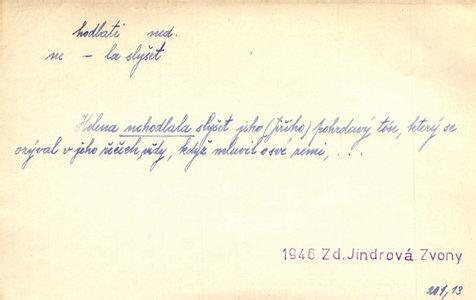 hodlati ned.
ne – la slyšet
Helena nehodlala slyšet jeho (Jiřího) pohrdavý tón, který se
ozýval v jeho řečech vždy, když mluvil o své zemi, . . .
1946 Zd. Jindrová. Zvony
201,13